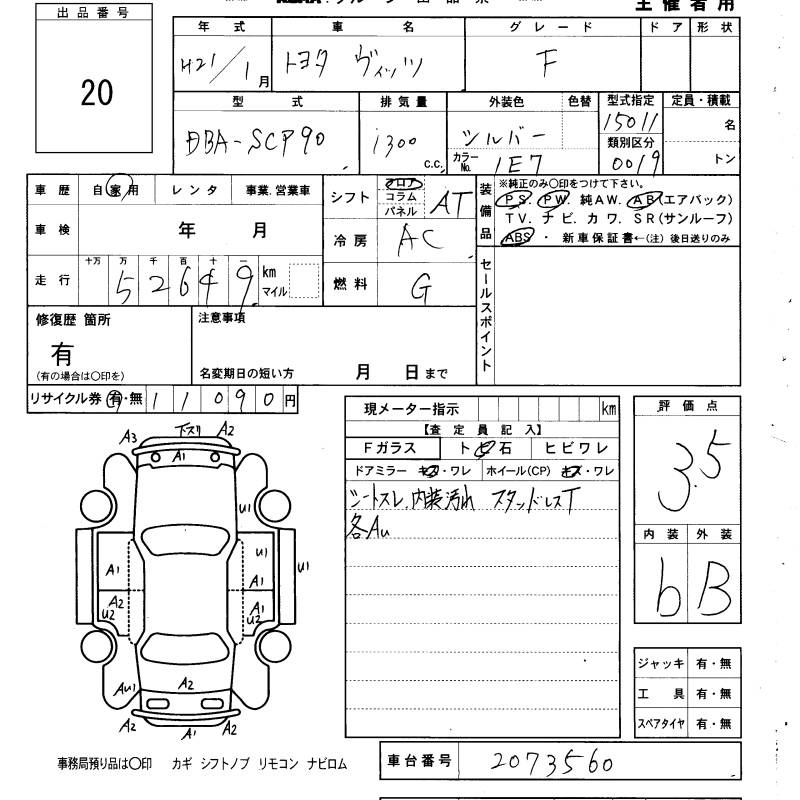 主催者用
出品番号
20
年式 車名 グレード ドア 形状
H21/1月 トヨタ ヴィッツ F
型式 排気量 外装色 色替 型式指定 定員・積載
DBA-SCP90 1300 c.c. シルバー 15011 名
カラーNo. 1E7 類別区分 0019 トン
車歴 自家用 レンタ 事業.営業車
車検 年 月
走行 十万 万 千 百 十 一
52649 km マイル
シフト フロア コラム パネル AT
冷房 AC
燃料 G
装備品 ※純正のみ〇印をつけて下さい。
PS. PW. 純AW. AB(エアバック)
TV. ナビ. カワ. SR(サンルーフ)
ABS ・ 新車保証書←(注) 後日送りのみ
セールスポイント
修復歴 箇所
有
(有の場合は〇印を)
注意事項
名変期日の短い方 月 日まで
リサイクル券 有・無 11090円
現メーター指示 km
【査定員記入】
Fガラス トビ石 ヒビワレ
ドアミラー キズ・ワレ ホイール(CP) キズ・ワレ
シートスレ.内装汚れ スタッドレスT
各AU
評価点
3.5
内装 外装
b B
A3 下スリ A2
A1
U1
U1
A1 A1 U1
A2 U2 A1 U2
AU1 A2
A2 A1 A2
ジャッキ 有・無
工具 有・無
スペアタイヤ 有・無
事務局預り品は〇印 カギ シフトノブ リモコン ナビロム
車台番号 2073560